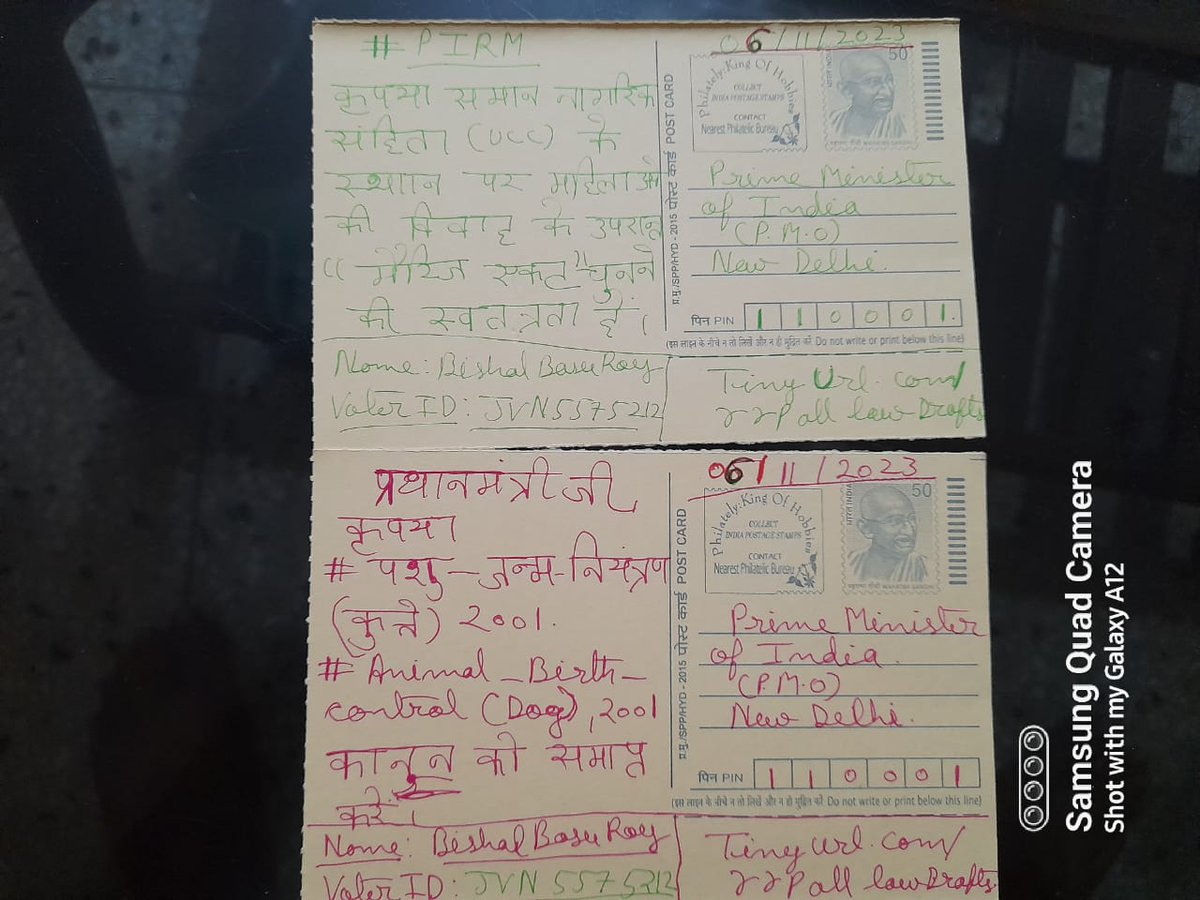 # PIRM
कृपया समान नागरिक
संहिता (UCC) के
स्थान पर महिलाओं
की विवाह के उपरान्त
"मैरिज एक्ट" चुनने
की स्वतन्त्रता दें।
Name: Bishal Basu Roy
Voter ID: JVN5575212
06/11/2023
Philately: King Of Hobbies
COLLECT
INDIA POSTAGE STAMPS
CONTACT
Nearest Philatelic Bureau
भारत INDIA
50
महात्मा गांधी MAHATMA GANDHI
प्र.मु./SPP/HYD - 2015 पोस्ट कार्ड POST CARD
Prime Minister
of India
(P.M.O)
New Delhi.
पिन PIN 110001.
(इस लाइन के नीचे न तो लिखें और न ही मुद्रित करें Do not write or print below this line)
TinyUrl.com/
rrPall lawDrafts
प्रधानमंत्री जी,
कृपया
# पशु-जन्म-नियंत्रण
(कुत्ते) 2001.
# Animal-Birth-
control (Dog), 2001
कानून को समाप्त
करें।
Name: Bishal Basu Roy
Voter ID: JVN5575212
06/11/2023
Philately: King Of Hobbies
COLLECT
INDIA POSTAGE STAMPS
CONTACT
Nearest Philatelic Bureau
भारत INDIA
50
महात्मा गांधी MAHATMA GANDHI
प्र.मु./SPP/HYD - 2015 पोस्ट कार्ड POST CARD
Prime Minister
of India.
(P.M.O)
New Delhi.
पिन PIN 110001
(इस लाइन के नीचे न तो लिखें और न ही मुद्रित करें Do not write or print below this line)
Tinyurl.com/
rrPall lawDrafts
Samsung Quad Camera
Shot with my Galaxy A12